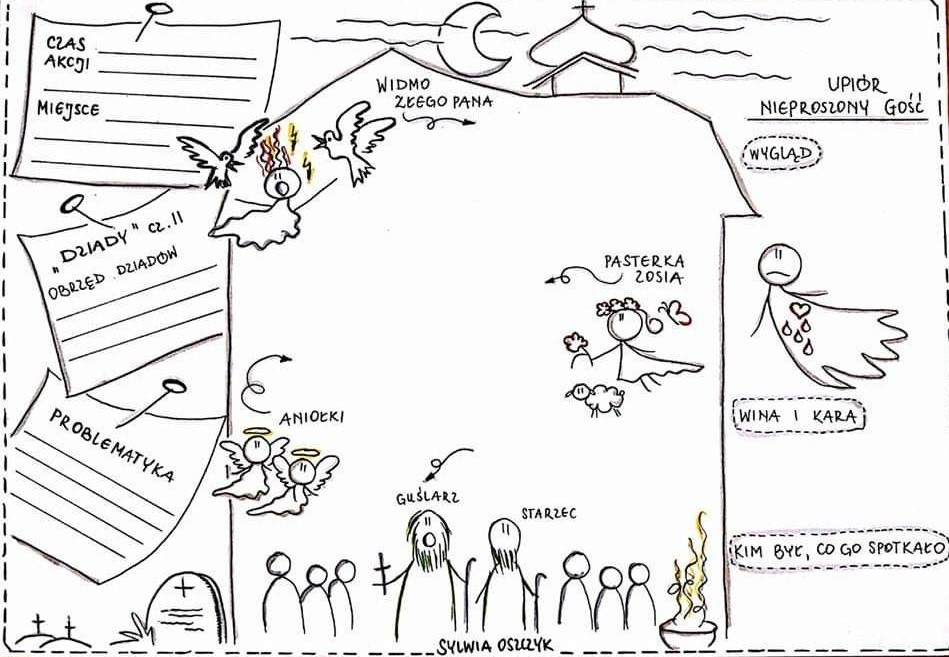 CZAS
AKCJI
MIEJSCE
„DZIADY" CZ. II
OBRZĘD DZIADÓW
PROBLEMATYKA
WIDMO
ZŁEGO PANA
UPIÓR
NIEPROSZONY GOŚĆ
WYGLĄD
PASTERKA
ZOSIA
WINA I KARA
ANIOŁKI
GUŚLARZ
STARZEC
KIM BYŁ, CO GO SPOTKAŁO
SYLWIA OSZCZYK